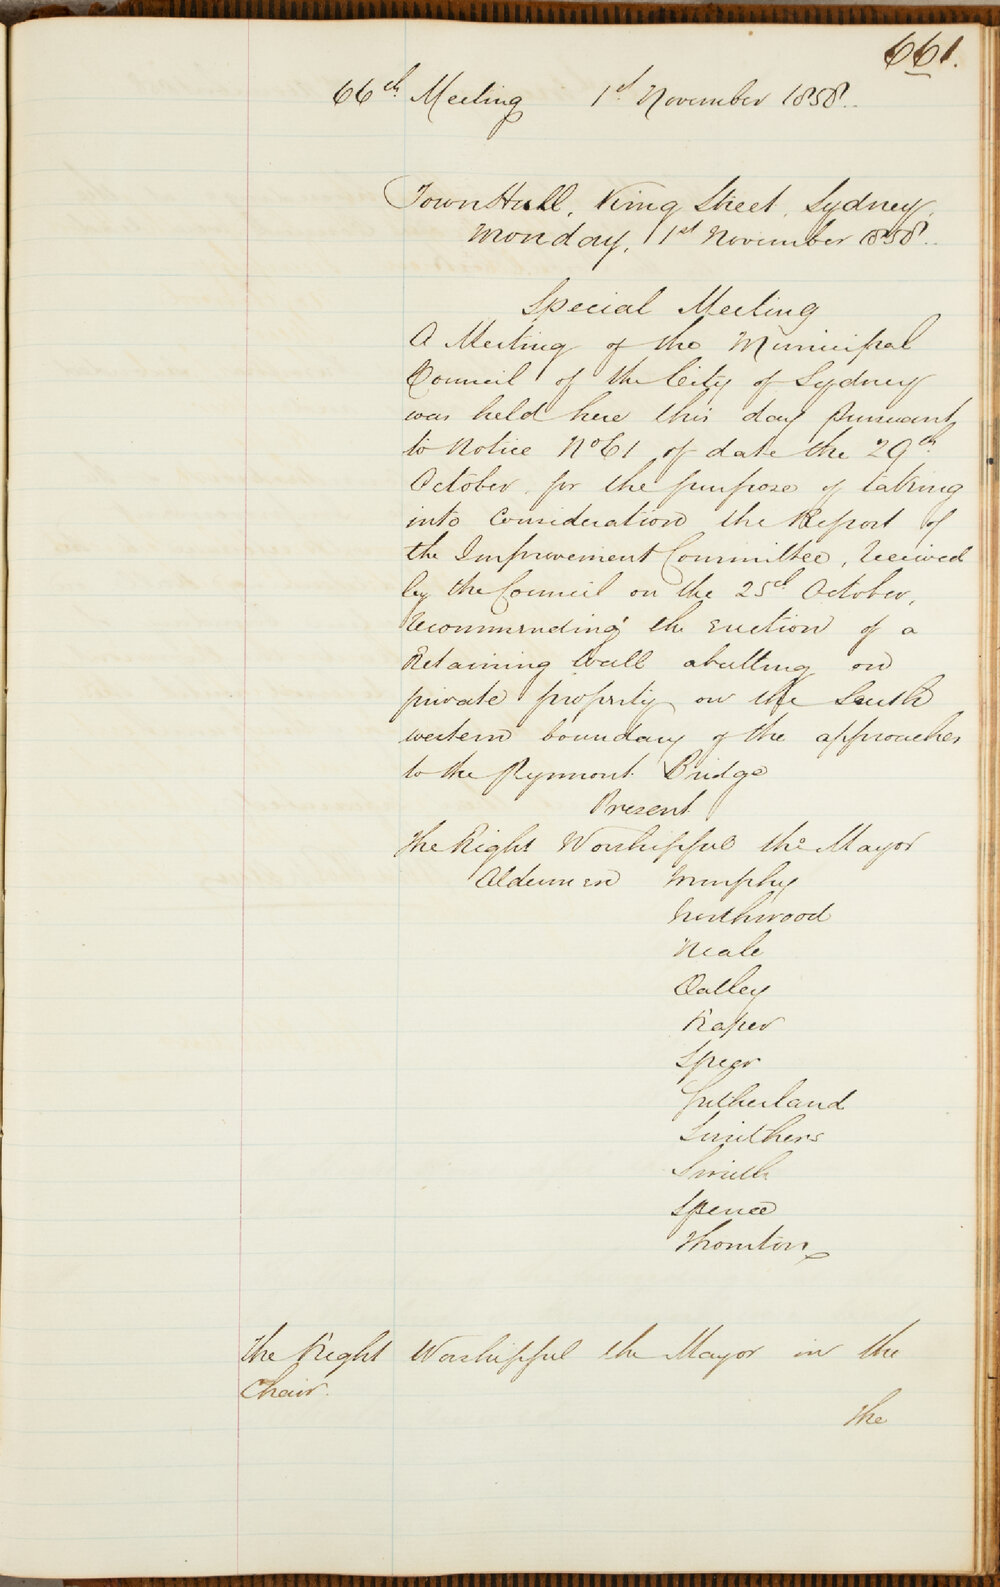 661.
66th Meeting 1st November 1858.
Town Hall, King Street, Sydney,
Monday, 1st November 1858.
Special Meeting
A Meeting of the Municipal
Council of the City of Sydney
was held here this day pursuant
to Notice No 61 of date the 29th
October for the purpose of taking
into consideration the Report of
the Improvement Committee, received
by the Council on the 25th October,
recommending the erection of a
Retaining Wall abutting on
private property on the South
western boundary of the approaches
to the Pyrmont Bridge
Present
The Right Worshipful the Mayor
Aldermen Murphy
Northwood
Neale
Oatley
Raper
Speer
Sutherland
Smithers
Smith
Spence
Thornton
The Right Worshipful the Mayor in the
Chair.
The